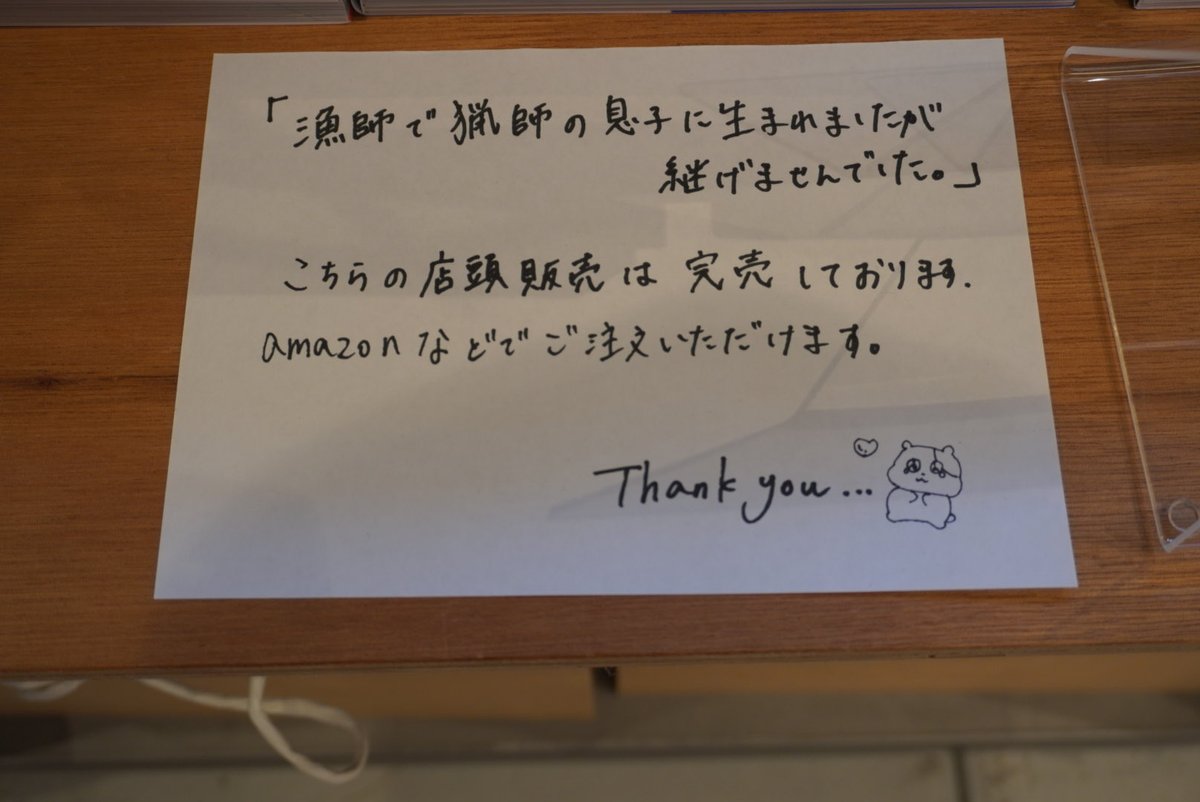 「漁師で猟師の息子に生まれましたが
継げませんでした。」
こちらの店頭販売は完売しております.
amazonなどでご注文いただけます。
Thank you...